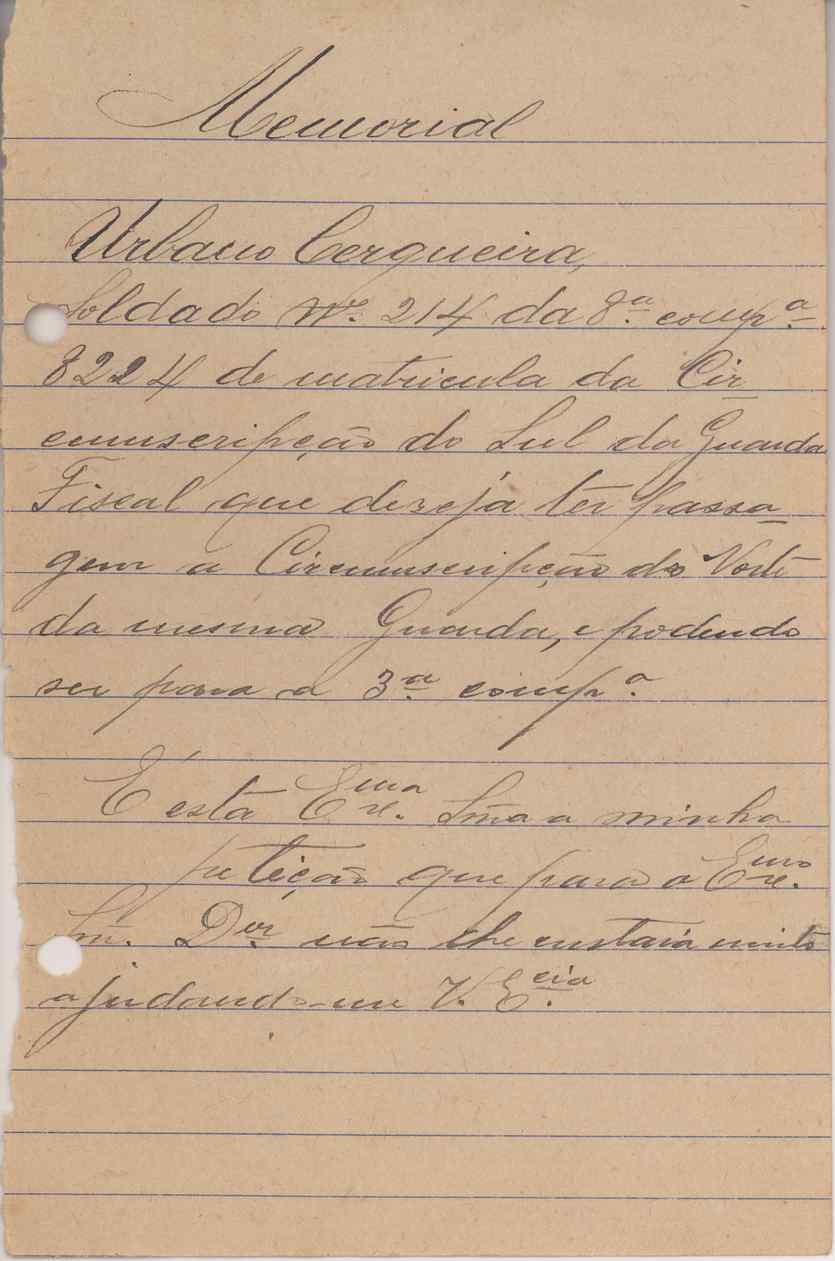 Memorial
Urbano Cerqueira,
Soldado Nº. 214 da 8.ª comp.ª
8224 de matricula da Cir
cumscripção do Sul da Guarda
Fiscal que dezeja ter passa
gem a Circumscripção do Norte
da mesma Guarda, e podendo
ser para a 3.ª comp.ª
É esta Exma. Snra a minha
petição que para o Exmo.
Snr. Dor. não lhe custará muito
ajudando-me V. Excia.